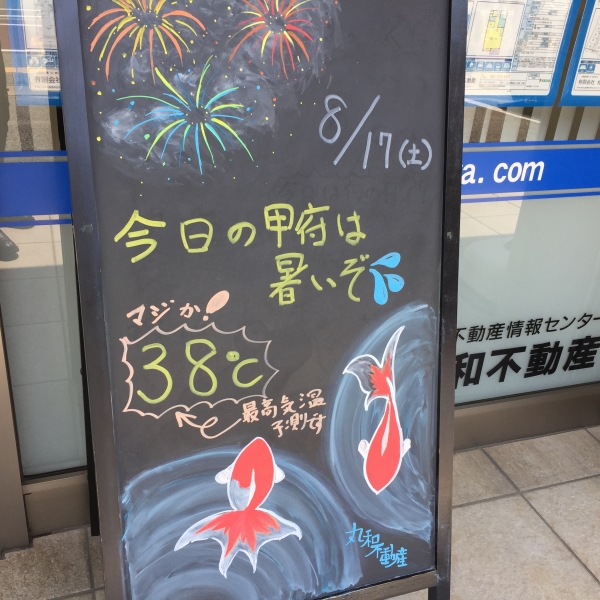 8/17(土)
a. com
今日の甲府は
暑いぞ
マジか!
38℃
最高気温
予測です
不動産情報センター
和不動産
丸和不動産